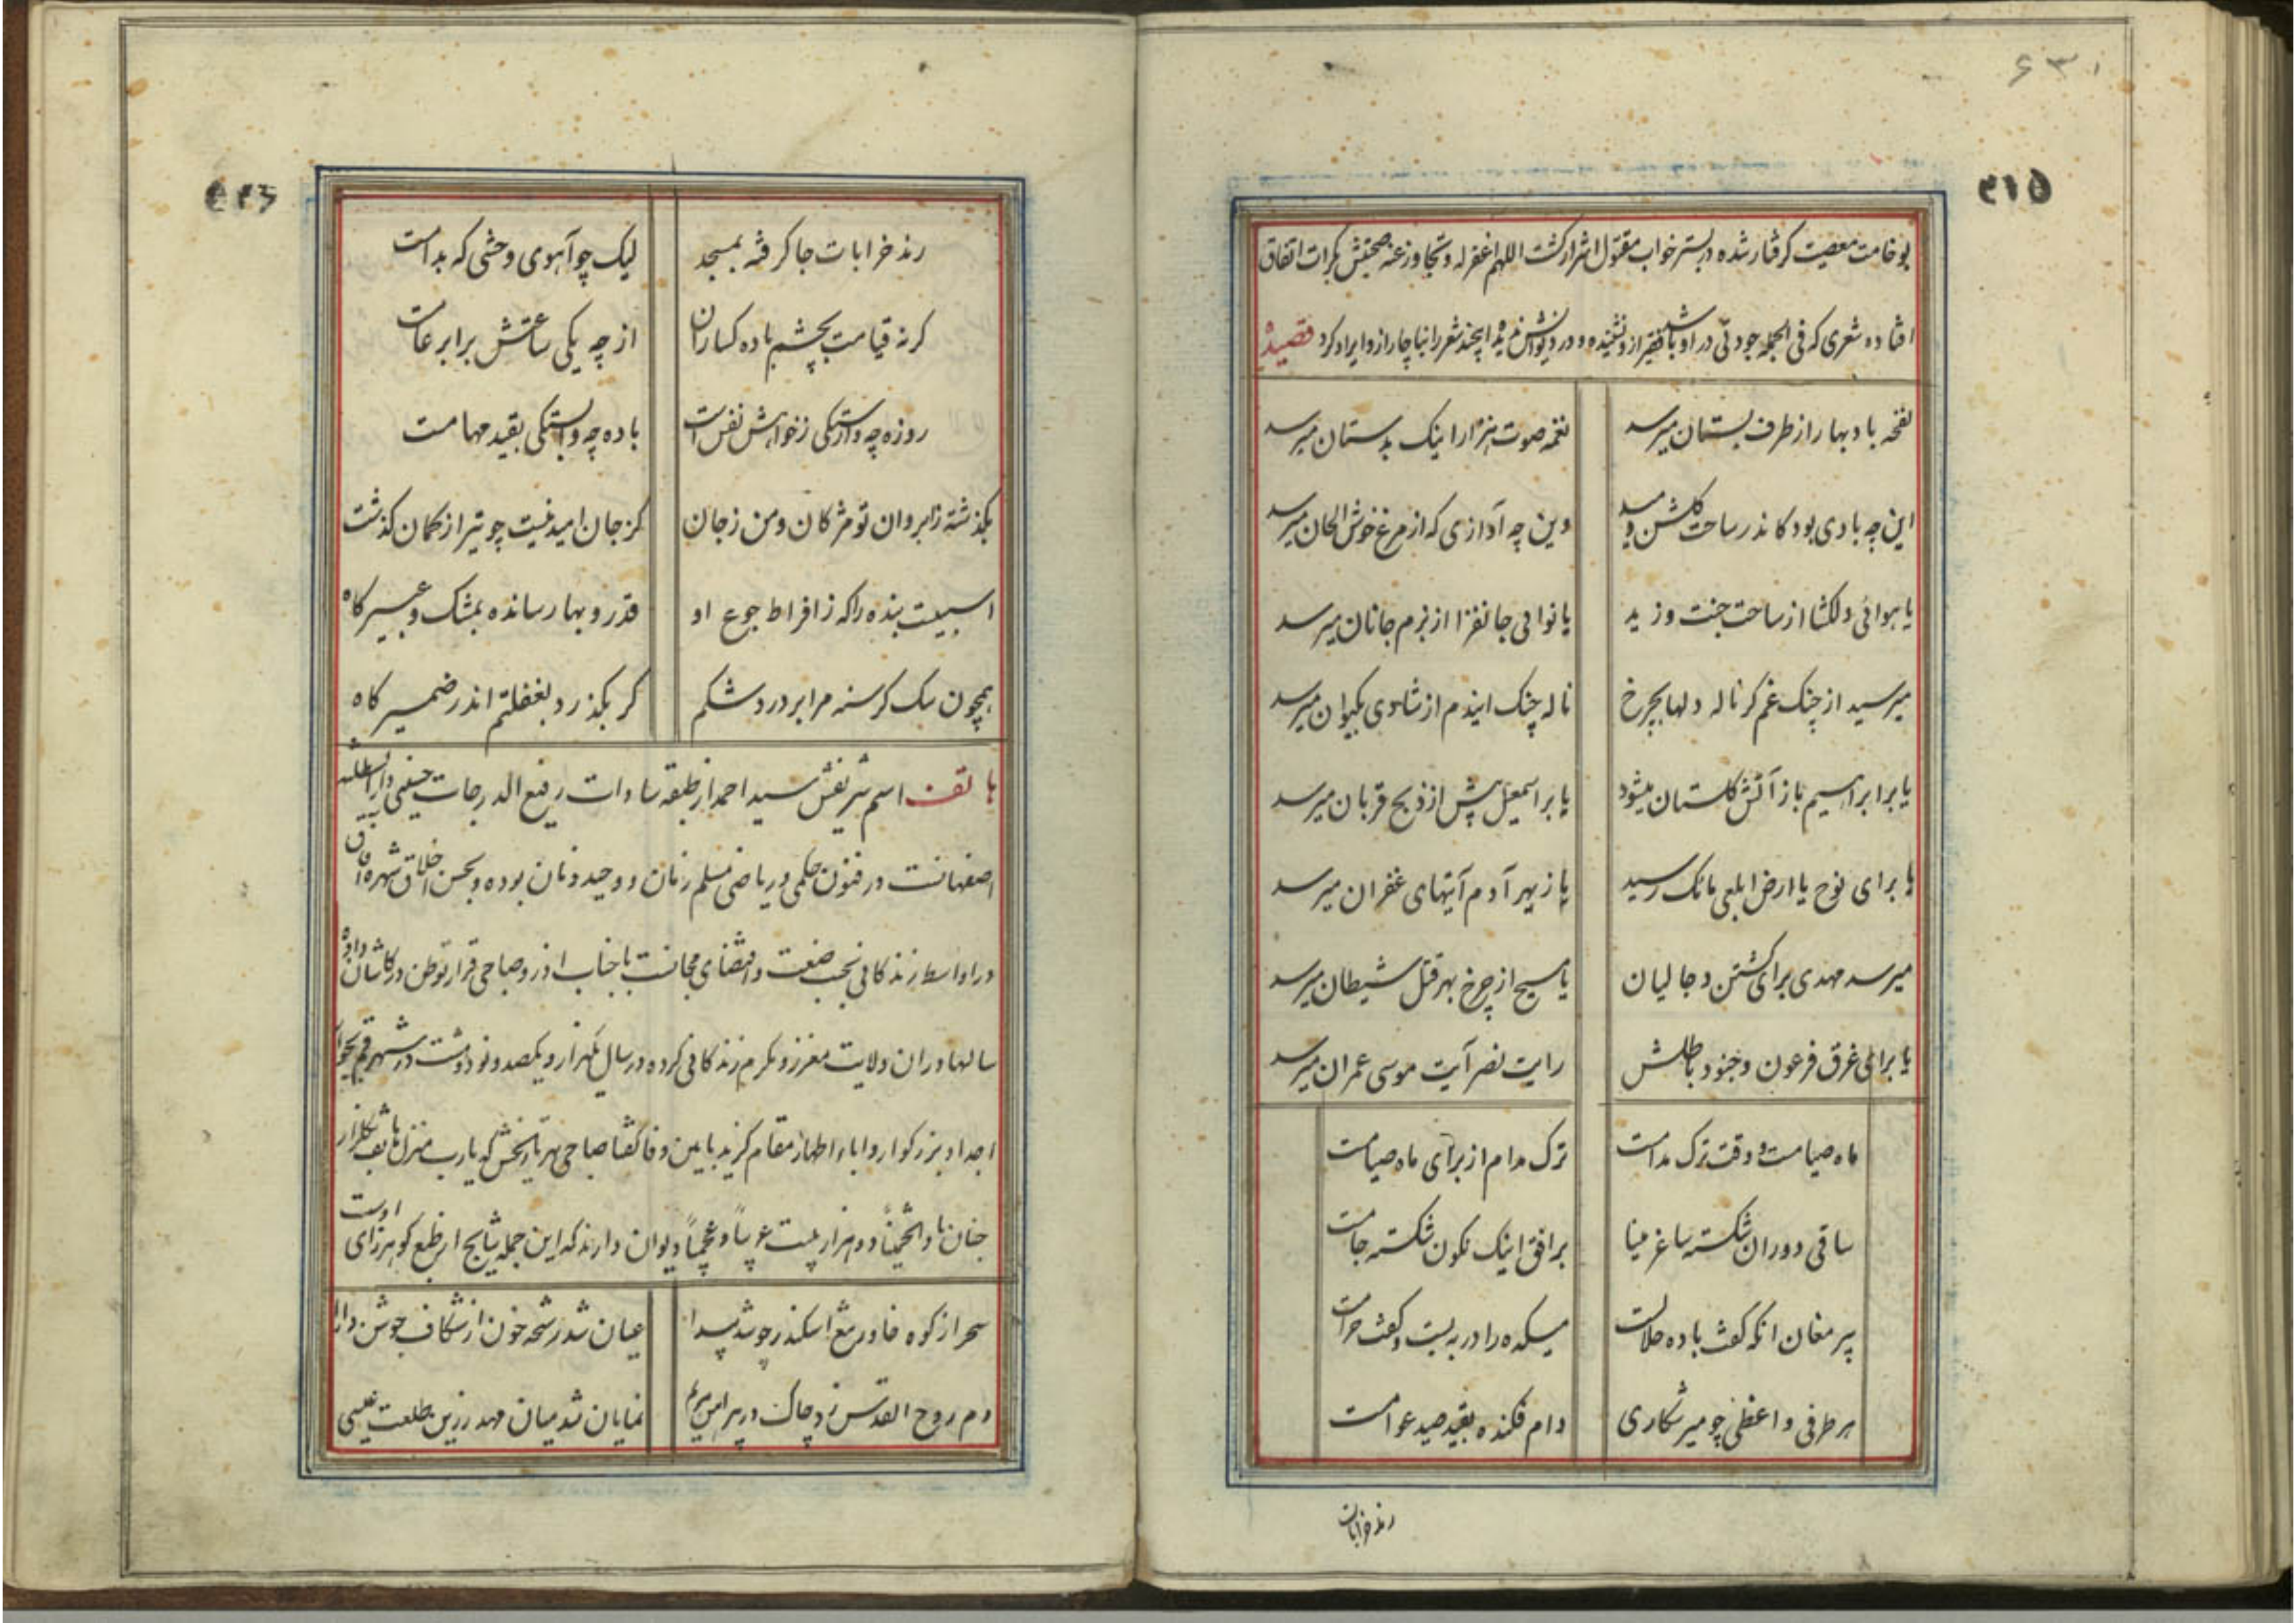 ۶۳۱
۵۱۵
بوخامت معصیت گرفتار شده در بستر خواب مقتول اشرار گشت اللهم اغفر له و تجاوز عنه صحبتش بکرات اتفاق
افتاده شعری که فی الجمله جودتی در او باشد فقیر از او نشنیده و در دیوانش ندیده اینچند شعر را ناچار از او ایراد کرد قصیده
نفخه باد بهار از طرف بستان میرسد نغمه صوت هزار اینک بدستان میرسد
این چه بادی بود کاندر ساحت گلشن وزید وین چه آوازی که از مرغ خوش الحان میرسد
یا هوائی دلکشا از ساحت جنت وزید یا نوائی جانفزا از بزم جانان میرسد
میرسید از چنک غم کر ناله دلها بچرخ ناله چنک ایندم از شادی بکیوان میرسد
یا برابراهیم باز آتش گلستان میشود یا بر اسمعیل پیش از ذبح قربان میرسد
یا برای نوح یا ارض ابلعی بانک رسید یا ز بهر آدم آیتهای غفران میرسد
میرسد مهدی برای کشتن دجالیان یا مسیح از چرخ بهر قتل شیطان میرسد
یا برای غرق فرعون و جنود باطلش رایت نصر آیت موسی عمران میرسد
ماه صیامست و وقت ترک مدامست ترک مدام از برای ماه صیامست
ساقی دوران شکسته ساغر مینا برافق اینک نکون شکسته جامست
پیر مغان انکه گفت باده حلالست میکده را در به بست و گفت حرامست
هر طرفی واعظی چو میر شکاری دام فکنده بقید صید عوامست
رند خرابات
رند خرابات جا گرفته بمسجد لیک چو آهوی وحشی که بدامست
کرنه قیامت بچشم باده کساران از چه یکی ساعتش برابر عامست
روزه چه وارستکی ز خواهش نفس است باده چه وابستکی بقید مهامست
بگذشته ز ابروان تو مژکان و من ز جان کز جان امید نیست چو تیر از کمان گذشت
اسبیست بنده را که ز افراط جوع او قدر و بها رسانده بمشک و عبیر کاه
همچون سک کرسنه مرا بر درد شکم کر بکذرد بغفلتم اندر ضمیر کاه
هاتف اسم شریفش سید احمد از طبقه سادات رفیع الدرجات حسینی دار السلطنه
اصفهانست در فنون حکمی و ریاضی مسلم زمان و وحید دوران بوده و بحسن اخلاق شهره آفاق
در اواسط زندکانی بحسب صنعت و اقتضای مجانست با جناب اذر و صباحی قرار توطن در کاشان داده
سالها در ان ولایت معزز و مکرم زندکانی کرده در سال یکهزار و یکصد و نود و هشت در شهر قم بجوار
اجداد بزرکوار و اباء اطهار مقام گزید باین وفا گفتا صباحی بهر تاریخش که یارب منزل هاتف بگلزار
جنان بادا تخمینا دو هزار بیت عربیا و عجمیا دیوان دارند که این جمله نتایج ان طبع کوهرزای اوست
سحر از کوه خاور تیغ اسکندر چو شد پیدا عیان شد رشحه خون از شکاف جوشن دارا
دم روح القدس زد چاک در پیراهن مریم نمایان شد میان مهد زرین طلعت عیسی